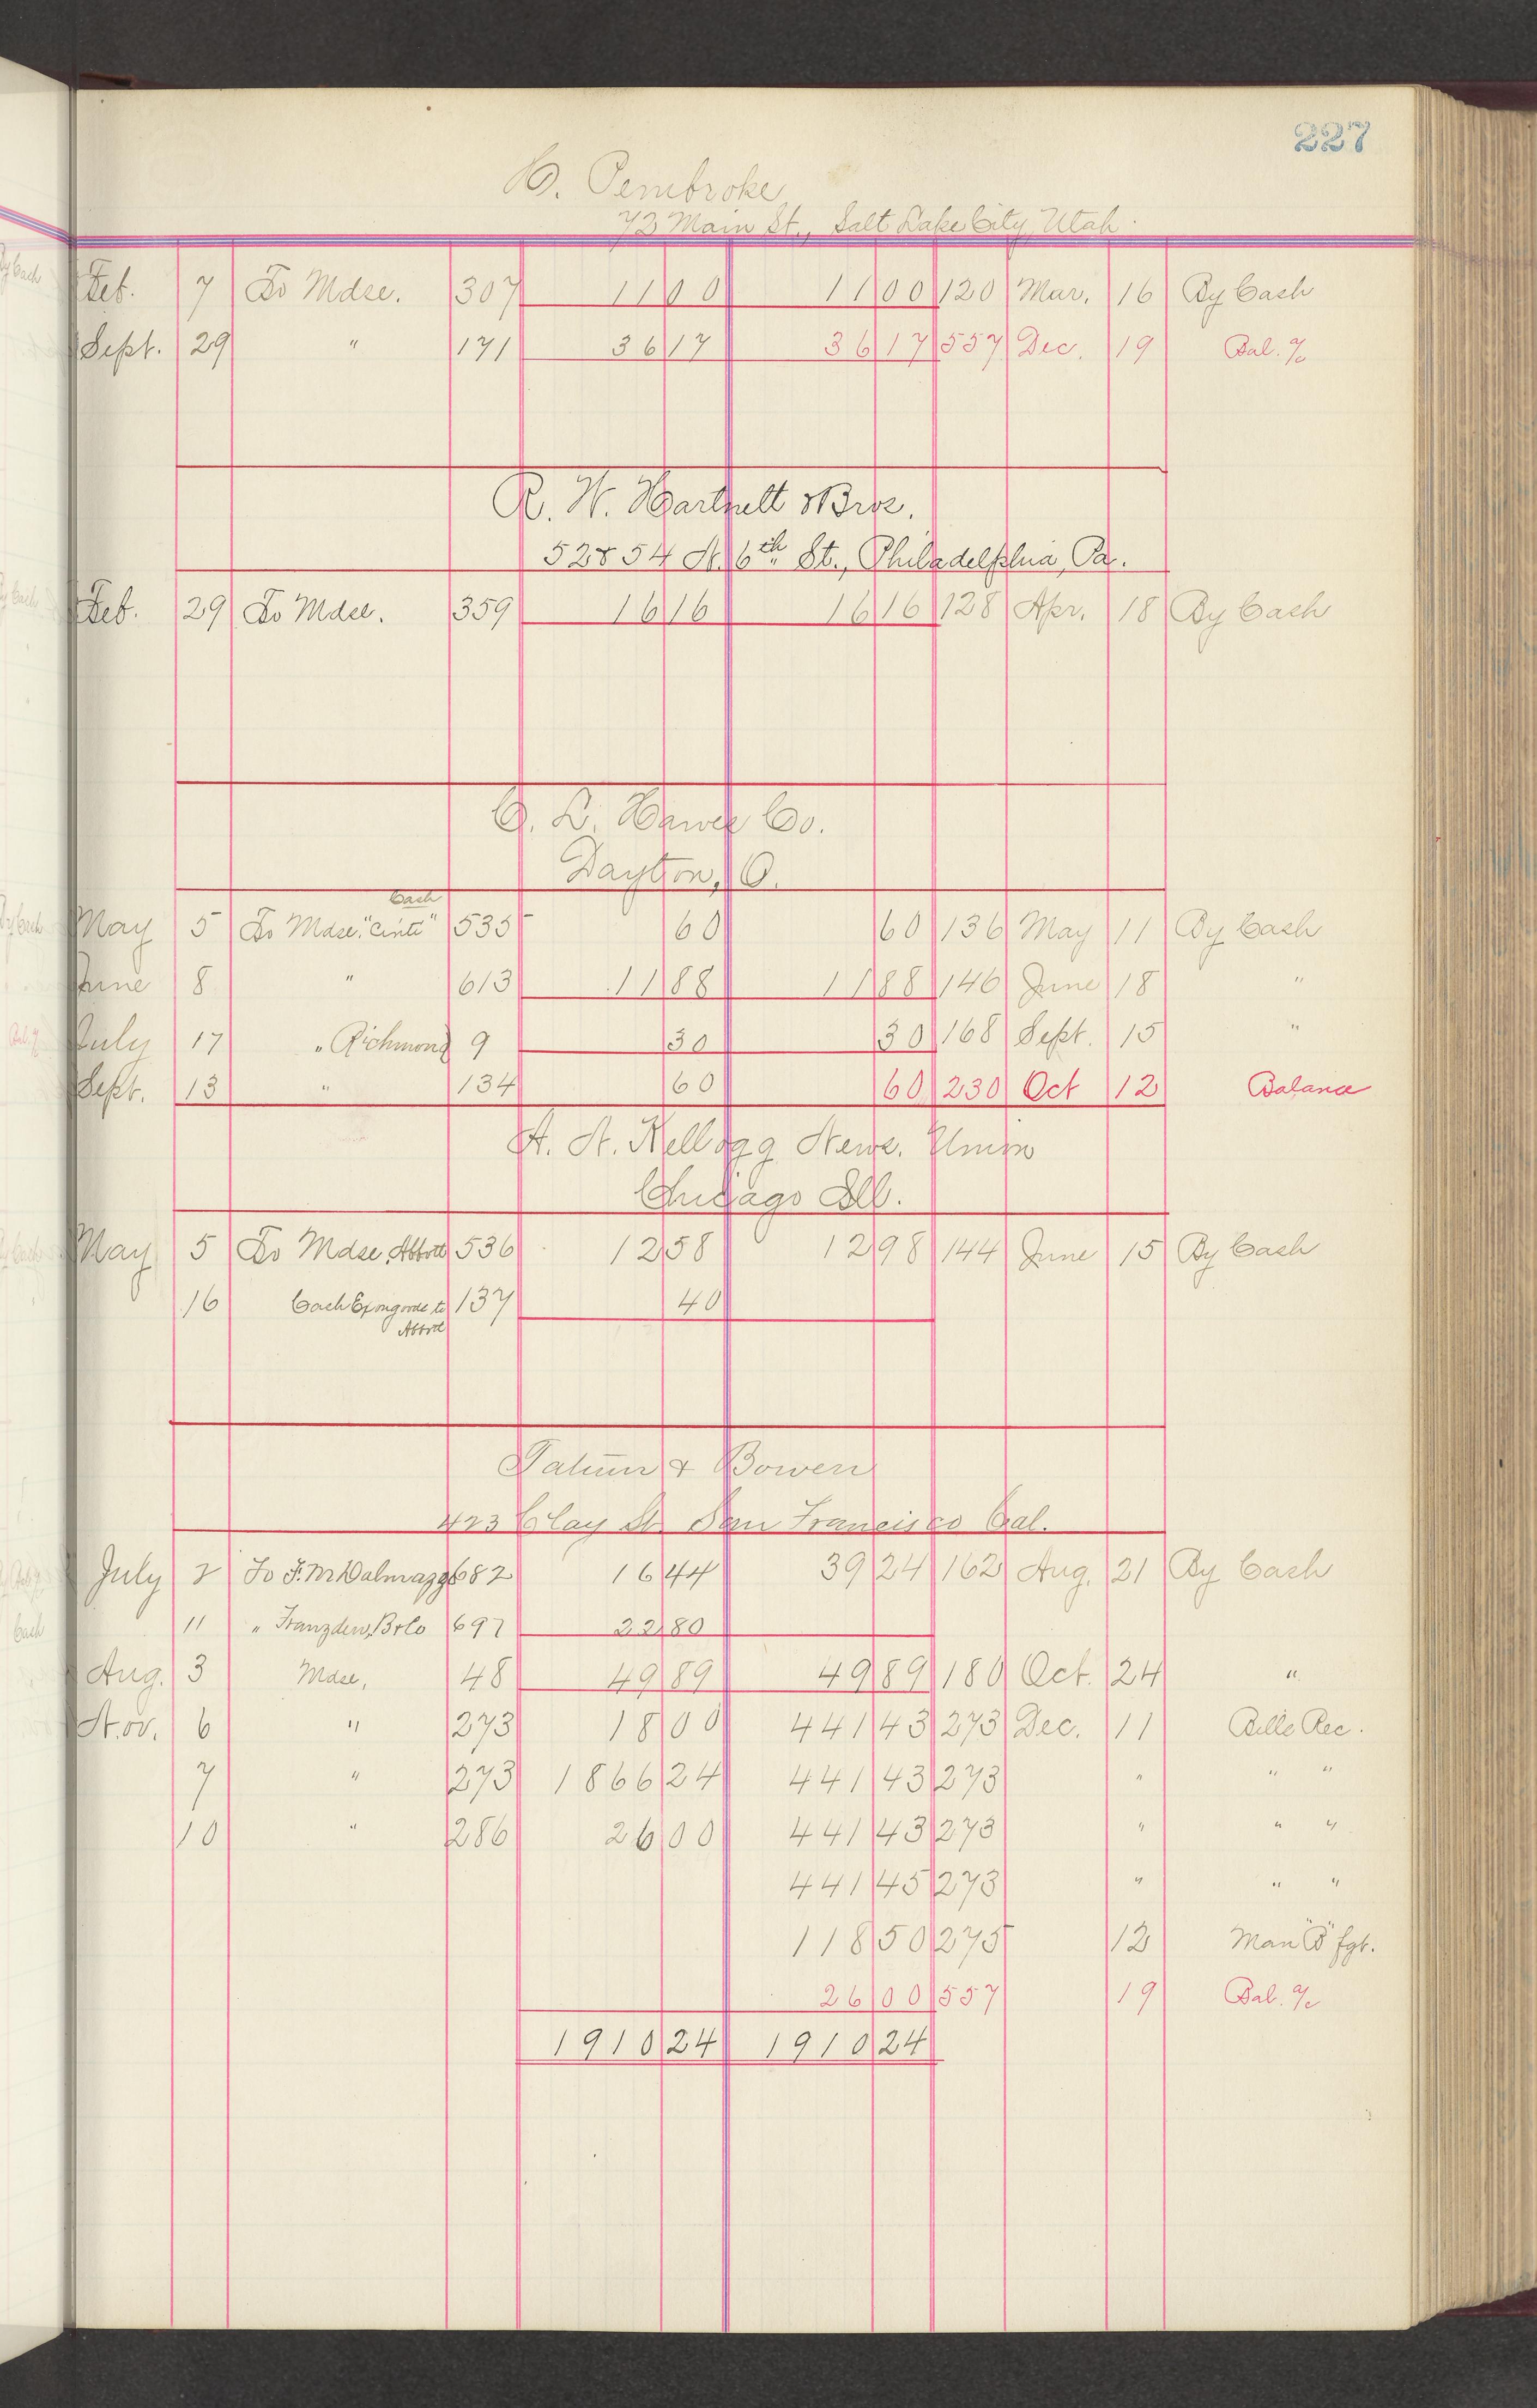 227
C. Pembroke
72 Main St., Salt Lake City, Utah.
Feb. 7 To Mdse. 307 11 00 11 00 120 Mar. 16 By Cash
Sept. 29 " 171 36 17 36 17 557 Dec. 19 Bal. %
R. W. Hartnett & Bros.
52 & 54 N. 6th St., Philadelphia, Pa.
Feb. 29 To Mdse. 359 16 16 16 16 128 Apr. 18 By Cash
C. L. Hawes Co.
Dayton, O.
Cash
May 5 To Mdse. "Cinti" 535 60 60 136 May 11 By Cash
June 8 " 613 11 88 11 88 146 June 18 "
July 17 " Richmond 9 30 30 168 Sept. 15 "
Sept. 13 " 134 60 60 230 Oct 12 Balance
A. N. Kellogg News. Union
Chicago Ill.
May 5 To Mdse, Abbott 536 12 58 12 98 144 June 15 By Cash
16 Cash Ex on goods to 137 40
Abbott
Tatum & Bowen
423 Clay St. San Francisco Cal.
July 2 To F. M. Dalmazzo 682 16 44 39 24 162 Aug. 21 By Cash
11 " Franzden, Br Co 697 22 80
Aug. 3 Mdse, 48 49 89 49 89 180 Oct. 24 "
Nov. 6 " 273 18 00 441 43 273 Dec. 11 Bills Rec.
7 " 273 1866 24 441 43 273 " " "
10 " 286 26 00 441 43 273 " " "
441 45 273 " " "
118 50 275 12 Man "B" fgt.
26 00 557 19 Bal. %
1910 24 1910 24